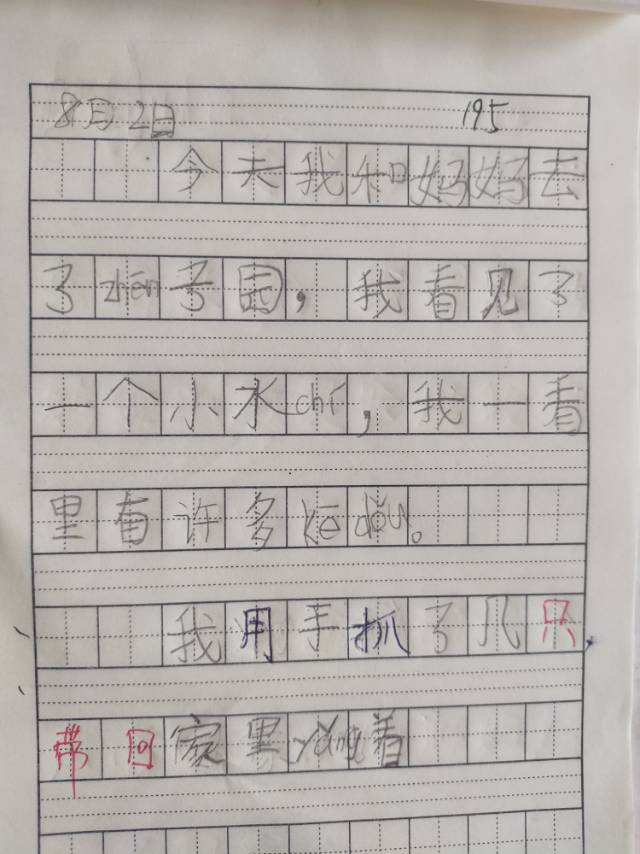 8月2日 195
今天我和妈妈去
了zhēn子园，我看见了
一个小水chí，我一看
里有许多kē dǒu。
我用手抓了几只，
带回家里yǎng着